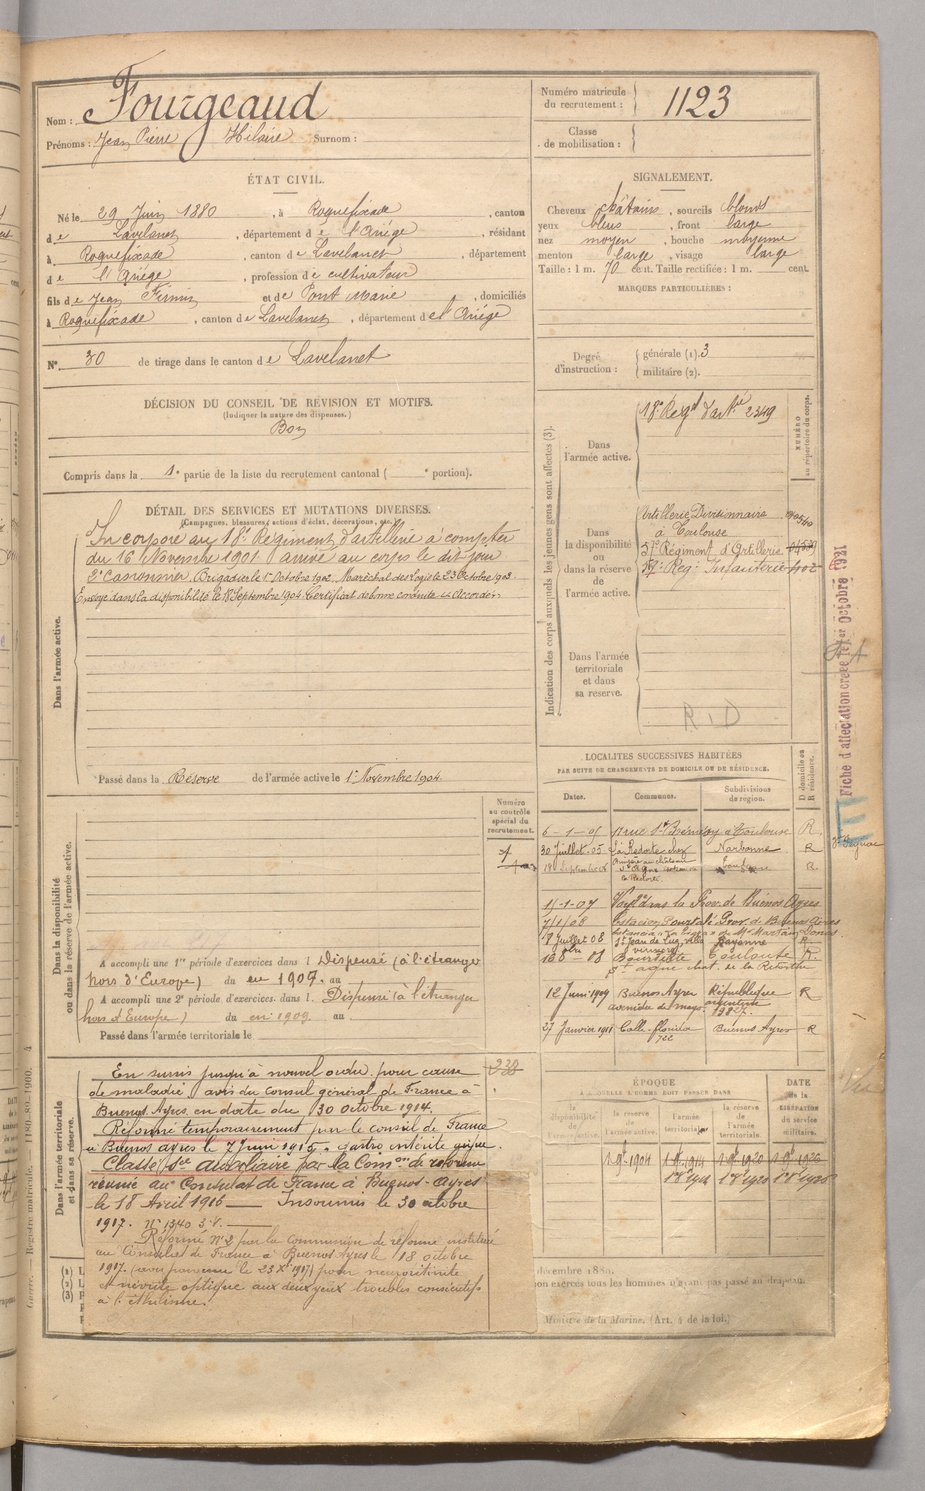 Nom : Fourgeaud
Prénoms : Jean Pierre Hilaire Surnom :
Numéro matricule du recrutement : 1123
Classe de mobilisation :
ÉTAT CIVIL.
Né le 29 Juin 1880, à Roquefixade, canton
de Lavelanet, département de l'Ariège, résidant
à Roquefixade, canton de Lavelanet, département
de l'Ariège, profession de cultivateur
fils de Jean Firmin et de Pont Marie, domiciliés
à Roquefixade, canton de Lavelanet, département de l'Ariège
N° 30 de tirage dans le canton de Lavelanet
SIGNALEMENT.
Cheveux châtains, sourcils blonds
yeux bleus, front large
nez moyen, bouche moyenne
menton large, visage large
Taille : 1 m. 70 cent. Taille rectifiée : 1 m. cent.
MARQUES PARTICULIÈRES :
Degré d'instruction : générale (1). 3
militaire (2).
DÉCISION DU CONSEIL DE RÉVISION ET MOTIFS.
(Indiquer la nature des dispenses.)
Bon
Compris dans la 1e partie de la liste du recrutement cantonal ( e portion).
DÉTAIL DES SERVICES ET MUTATIONS DIVERSES.
(Campagnes, blessures, actions d'éclat, décorations, etc.)
Dans l'armée active.
Incorporé au 18e Régiment d'artillerie à compter
du 16 Novembre 1901 arrivé au corps le dit jour
2e Canonnier, Brigadier le 1er Octobre 1902, Maréchal des Logis le 23 Octobre 1903
Envoyé dans la disponibilité le 18 Septembre 1904 Certificat de bonne conduite "Accordé"
Passé dans la Réserve de l'armée active le 1er Novembre 1904
Indication des corps auxquels les jeunes gens sont affectés (3).
NUMÉRO au répertoire du corps.
Dans l'armée active.
18e Regt d'artie 2349
Dans la disponibilité ou dans la réserve de l'armée active.
Artillerie Divisionnaire
à Toulouse
57e Régiment d'Artillerie
Reg. Infanterie
Dans l'armée territoriale et dans sa réserve.
R i D
Fiche d'affectation créée le 1er Octobre 1921
LOCALITÉS SUCCESSIVES HABITÉES
PAR SUITE DE CHANGEMENTS DE DOMICILE OU DE RÉSIDENCE.
Dates. Communes. Subdivisions de région. D domicile ou R résidence.
6-1-05 11 rue St Rémésy à Toulouse R
30 Juillet 05 La Redorte Narbonne R
1-1-07 dans la Prov. de Buenos Ayres
7/1/08 Estacion Prov. de Buenos Aires
8 Juillet 08 St Jean de Luz, villa Bayonne R
Toulouse R
12 Juin 1909 Buenos Ayres République argentine R
avenida de Mayo
27 Janvier 1911 Calle Florida Buenos Ayres R
Dans la disponibilité ou dans la réserve de l'armée active.
Numéro au contrôle spécial du recrutement.
A accompli une 1re période d'exercices dans l Dispensé (à l'étranger
hors d'Europe) du en 1907 au
A accompli une 2e période d'exercices dans l. Dispensé (à l'étranger
hors d'Europe) du en 1909 au
Passé dans l'armée territoriale le
Dans l'armée territoriale et dans sa réserve.
238
En sursis jusqu'à nouvel ordre pour cause
de maladie avis du consul général de France à
Buenos Ayres en date du 30 octobre 1914.
Réformé temporairement par le consul de France
à Buenos ayres le 7 juin 1915, gastro entérite
Classé Sce auxiliaire par la Comon de réforme
réunie au Consulat de France à Buenos-Ayres
le 18 Avril 1916 — Insoumis le 30 octobre
1917. n° 1340 3.V.
Réformé n° 2 par la commission de réforme instituée
au Consulat de France à Buenos Ayres le 18 octobre
1917 (avis parvenu le 23 Xbre 1917) pour neurorétinite
et névrite optique aux deux yeux troubles consécutifs
à l'éthylisme.
ÉPOQUE
À LAQUELLE L'HOMME DOIT PASSER DANS
DATE de la LIBÉRATION du service militaire.
la disponibilité de l'armée active. la réserve de l'armée active. l'armée territoriale. la réserve de l'armée territoriale.
1 9bre 1904 1 9bre 1914 1 9bre 1920 1 9bre 1926
décembre 1889.
non exercés tous les hommes n'ayant pas passé au drapeau.
Ministre de la Marine. (Art. 4 de la loi.)
Guerre. — Registre matricule. 1180-89. 1900. 4